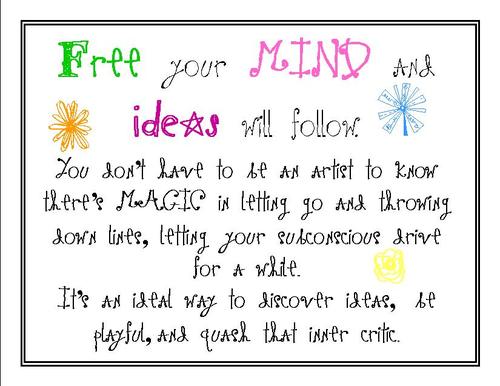 Free your MIND and
ideas will follow.
You don't have to be an artist to know
there's MAGIC in letting go and throwing
down lines, letting your subconscious drive
for a while.
It's an ideal way to discover ideas, be
playful, and quash that inner critic.